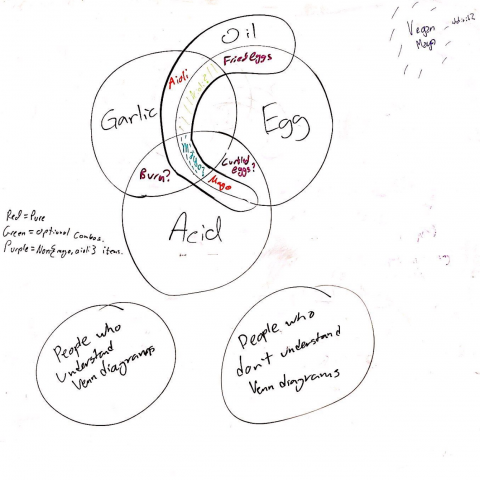 Oil
Vegan
Mayo
Fried eggs
Aioli
Garlic
Egg
Burn?
Curdled
eggs?
Mayo
Acid
Red = Pure
Green = optional combos.
Purple = Non{mayo, aioli} items.
People who
understand
Venn diagrams
People who
don't understand
Venn diagrams